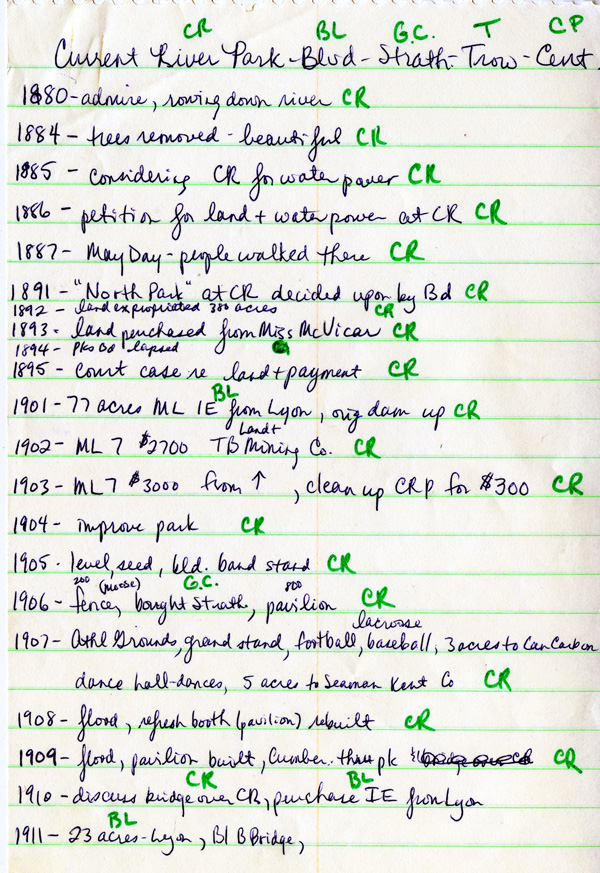 CR BL G.C. T CP
Current River Park - Blvd - Strath - Trow - Cent.
1880 - admire, rowing down river CR
1884 - trees removed - beautiful CR
1885 - considering CR for water power CR
1886 - petition for land + water power at CR CR
1887 - May Day - people walked there CR
1891 - "North Park" at CR decided upon by Bd CR
1892 - land expropriated 380 acres CR
1893 - land purchased from Miss McVicar CR
1894 - Pks Bd lapsed
1895 - court case re land + payment CR
BL
1901 - 77 acres ML IE from Lyon, orig dam up CR
Land +
1902 - ML 7 $2700 TB Mining Co. CR
1903 - ML 7 $3000 from ↑, clean up CRP for $300 CR
1904 - improve park CR
1905 - level, seed, bld. band stand CR
200 (moose) G.C. 800
1906 - fence, bought Strath, pavilion CR
lacrosse
1907 - Athl Grounds, grand stand, football, baseball, 3 acres to Can Carbon
dance hall - dances, 5 acres to Seaman Kent Co CR
1908 - flood, refresh booth (pavilion) rebuilt CR
1909 - flood, pavilion built, Cumber. pk CR
CR BL
1910 - discuss bridge over CR, purchase IE from Lyon
BL
1911 - 23 acres - Lyon, Bl B Bridge,